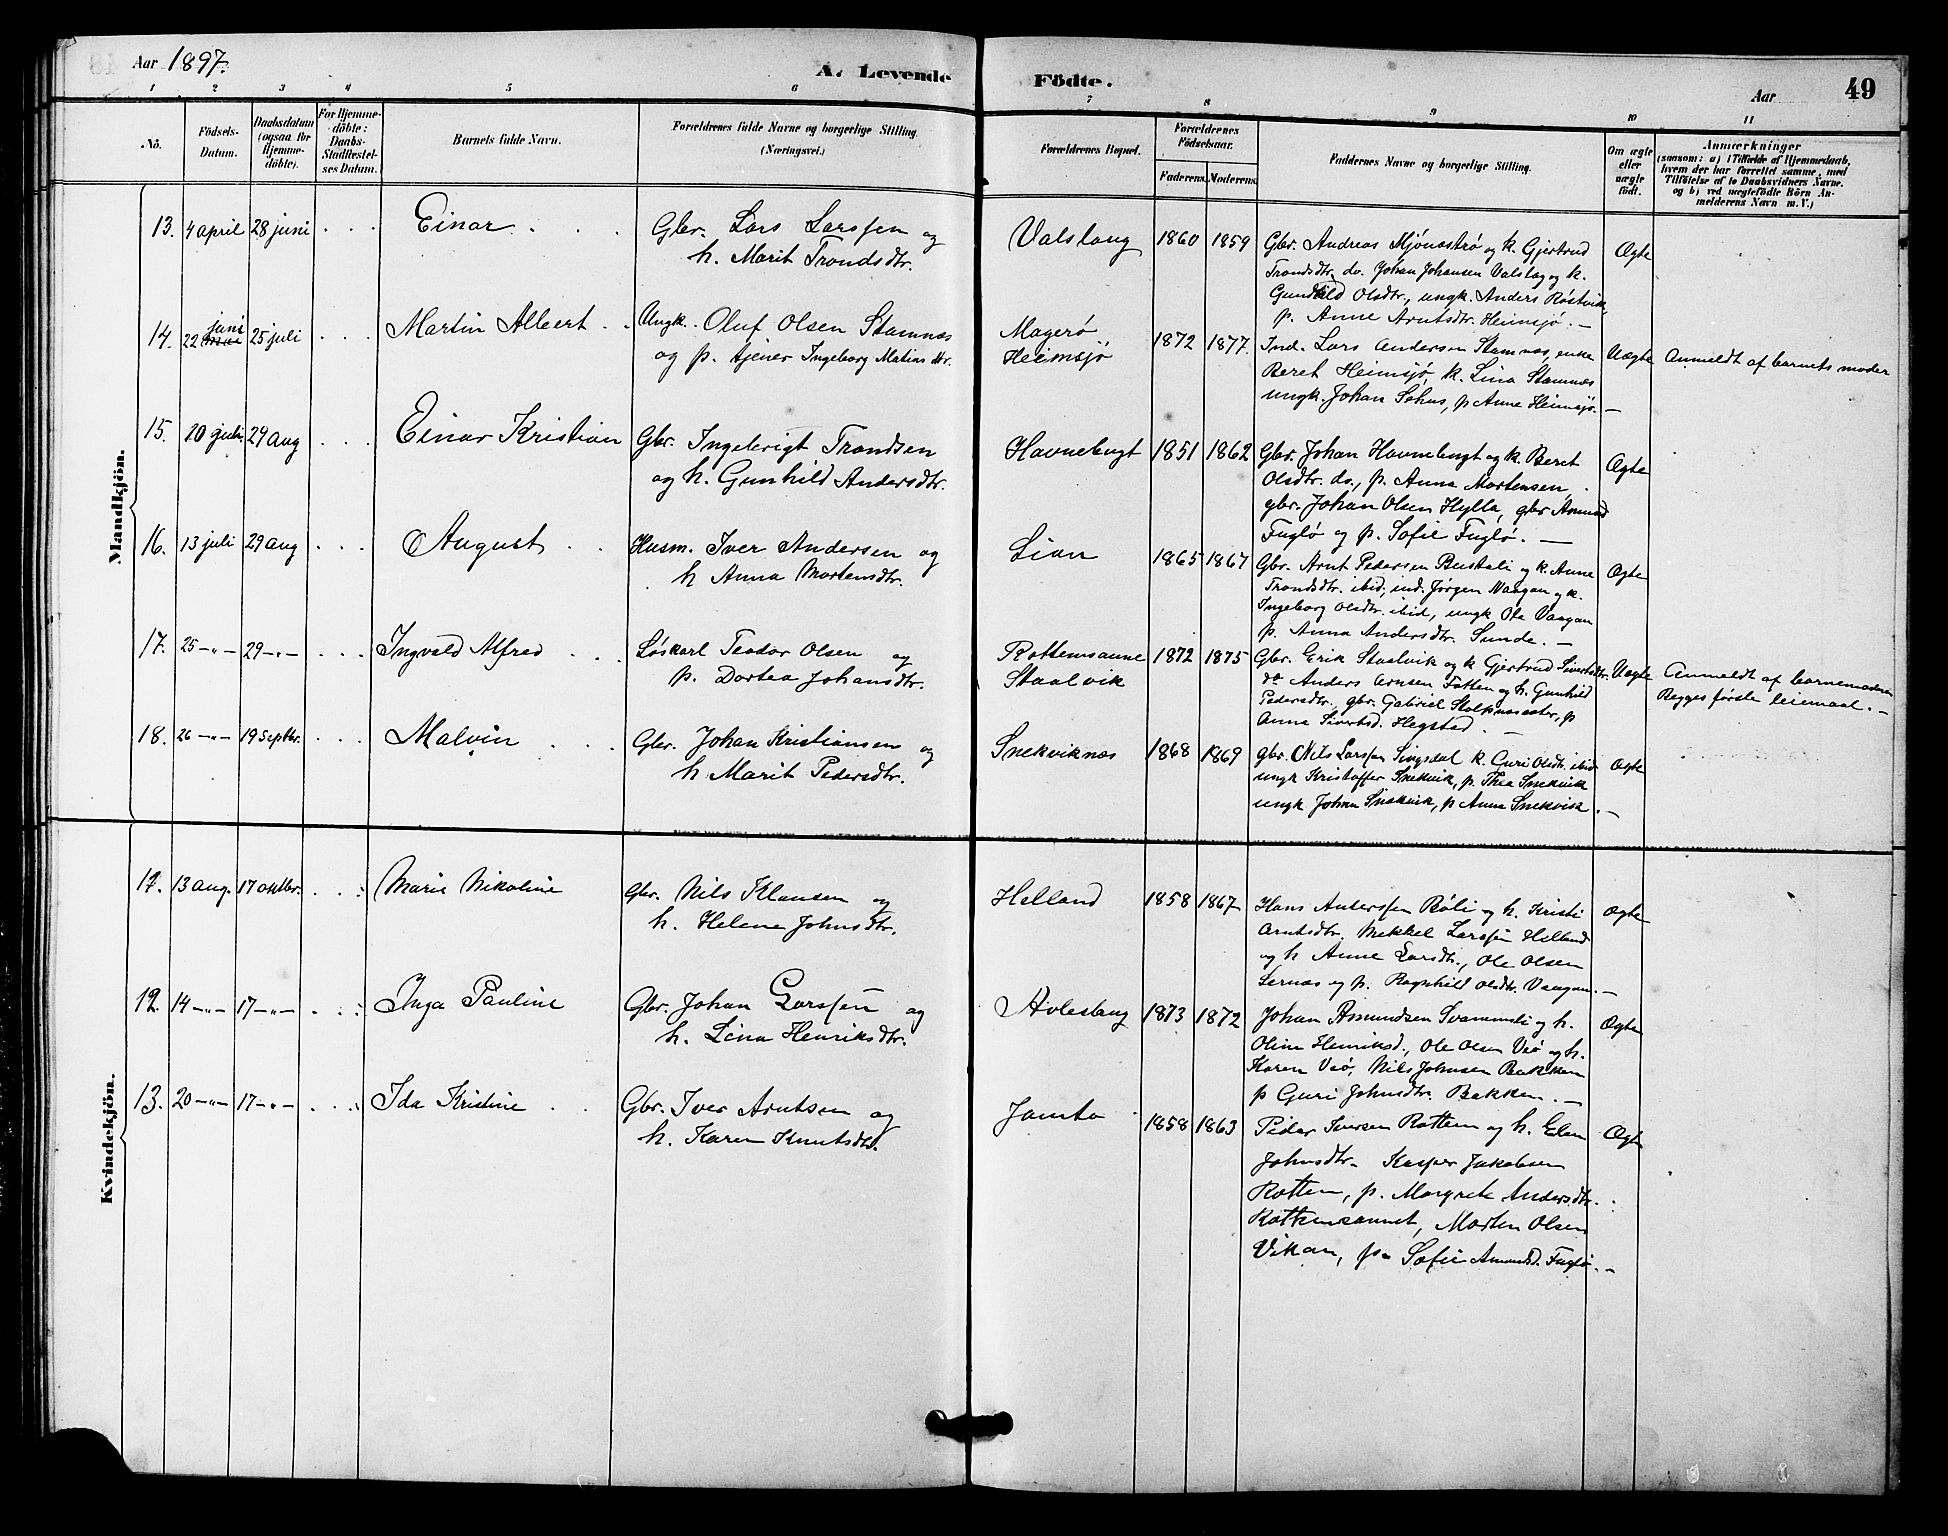 Aar 1897.
A. Levende Födte.
Aar
49
1 2 3 4 5 6 7 8 9 10 11
No.
Födsels-Datum.
Daabsdatum (ogsaa for Hjemme-döbte).
For Hjemme-döbte: Daabs-Stadfæstel-ses Datum.
Barnets fulde Navn.
Forældrenes fulde Navne og borgerlige Stilling. (Næringsvei.)
Forældrenes Bopæl.
Forældrenes Födselsaar.
Faderens. Moderens.
Faddernes Navne og borgerlige Stilling.
Om ægte eller uægte födt.
Anmærkninger
(saasom: a) i Tilfælde af Hjemmedaab,
hvem der har forrettet samme, med
Tilföielse af to Daabsvidners Navne.
og b) ved uægtefödte Börn An-
melderens Navn m. V.)
Mandkjön.
13. 4 april 28 juni Einar Gbr. Lars Larssen og
h. Marit Trondsdtr.
Valslaug 1860 1859 Gbr. Andreas Mjønestrø og k. Gjertrud
Trondsdtr. do. Johan Johansen Valslag og k.
Gunhild Olsdtr., ungk. Anders Røstvik,
p. Anne Arntsdtr. Heimsjø. —
Ægte
14. 22 mai juni 25 juli Martin Albert Ungk. Oluf Olsen Stamnæs
og p. tjener Ingeborg Matiasdtr.
Magerø
Heimsjø
1872 1877. Ind. Lars Andersen Stamnæs, enke
Beret Heimsjø, k. Lina Stamnæs
ungk. Johan Sehus, p Anne Heimsjø. —
Uægte Anmeldt af barnets moder
15. 20 juli 29 aug Einar Kristian Gbr. Ingebrigt Trondsen
og h. Gunhild Andersdtr.
Havnebugt 1851 1862 Gbr. Johan Havnebugt og k. Beret
Olsdtr. do., p. Anna Mortensen,
gbr. Johan Olsen Hylla, gbr Amund
Fuglø og p. Sofie Fuglø. —
Ægte
16. 13 juli 29 aug August Husm. Iver Andersen og
h Anna Mortensdtr.
Lian 1865 1867 Gbr. Arnt Pedersen Bustali og k. Anne
Trondsdtr. ibid, ind. Jørgen Vaagan og k.
Ingeborg Olsdtr. ibid, ungk Ole Vaagan
p. Anna Andersdtr. Sunde. —
Ægte
17. 25 —"— 29 —"— Ingvald Alfred Løskarl Teodor Olsen og
p. Dortea Johansdtr.
Rottemsanne
Staalvik
1872 1875 Gbr. Erik Staalvik og k Gjertrud Sivertsdtr.
do Anders Arnsen Fatten og h. Gunhild
Pedersdtr., gbr. Gabriel Stolpnesæter, p
Anna Sivertsd. Hegstad. —
Uægte Anmeldt af barnemoderen
Begges første leiemaal. —
18. 26 —"— 19 septbr. Malvin Gbr. Johan Kristiansen og
h Marit Pedersdtr.
Snekviknæs 1868 1869 gbr. Nils Larssen k. Guri Olsdtr. ibid
ungk Kristoffer Snekvik, p. Thea Snekvik
ungk Johan Snekvik, p Anna Snekvik. —
Ægte
Kvindekjön.
11. 13 aug. 17 oktbr. Marie Nikoline Gbr. Nils Klausen og
h. Helene Johnsdtr.
Helland 1858 1867 Hans Anderssen Røli og h. Kristi
Arntsdtr. Mekkel Larssen Helland
og h Anne Larsdtr., Ole Olsen
Lernæs og p. Ragnhild Olsdtr. Vaagan. —
Ægte
12. 14 —"— 17 —"— Inga Pauline Gbr. Johan Larssen og
h. Lina Henriksdtr.
Avleslaug 1873 1872 Johan Amundsen Svanemli og h.
Oline Henriksd., Ole Olsen Veø og h.
Karen Veø, Nils Johnsen Bakken
p Guri Johnsdtr. Bakken. —
Ægte
13. 20 —"— 17 —"— Ida Kristine Gbr. Iver Arntsen og
h. Karen Knutsdtr.
Jamta 1858 1863 Peder Iversen Rottem og h. Elen
Johnsdtr. Kasper Jakobsen
Rottem, p. Margrete Andersdtr.
Rottemsannet, Morten Olsen
Vikan, p. Sofie Amundsd. Fuglø. —
Ægte